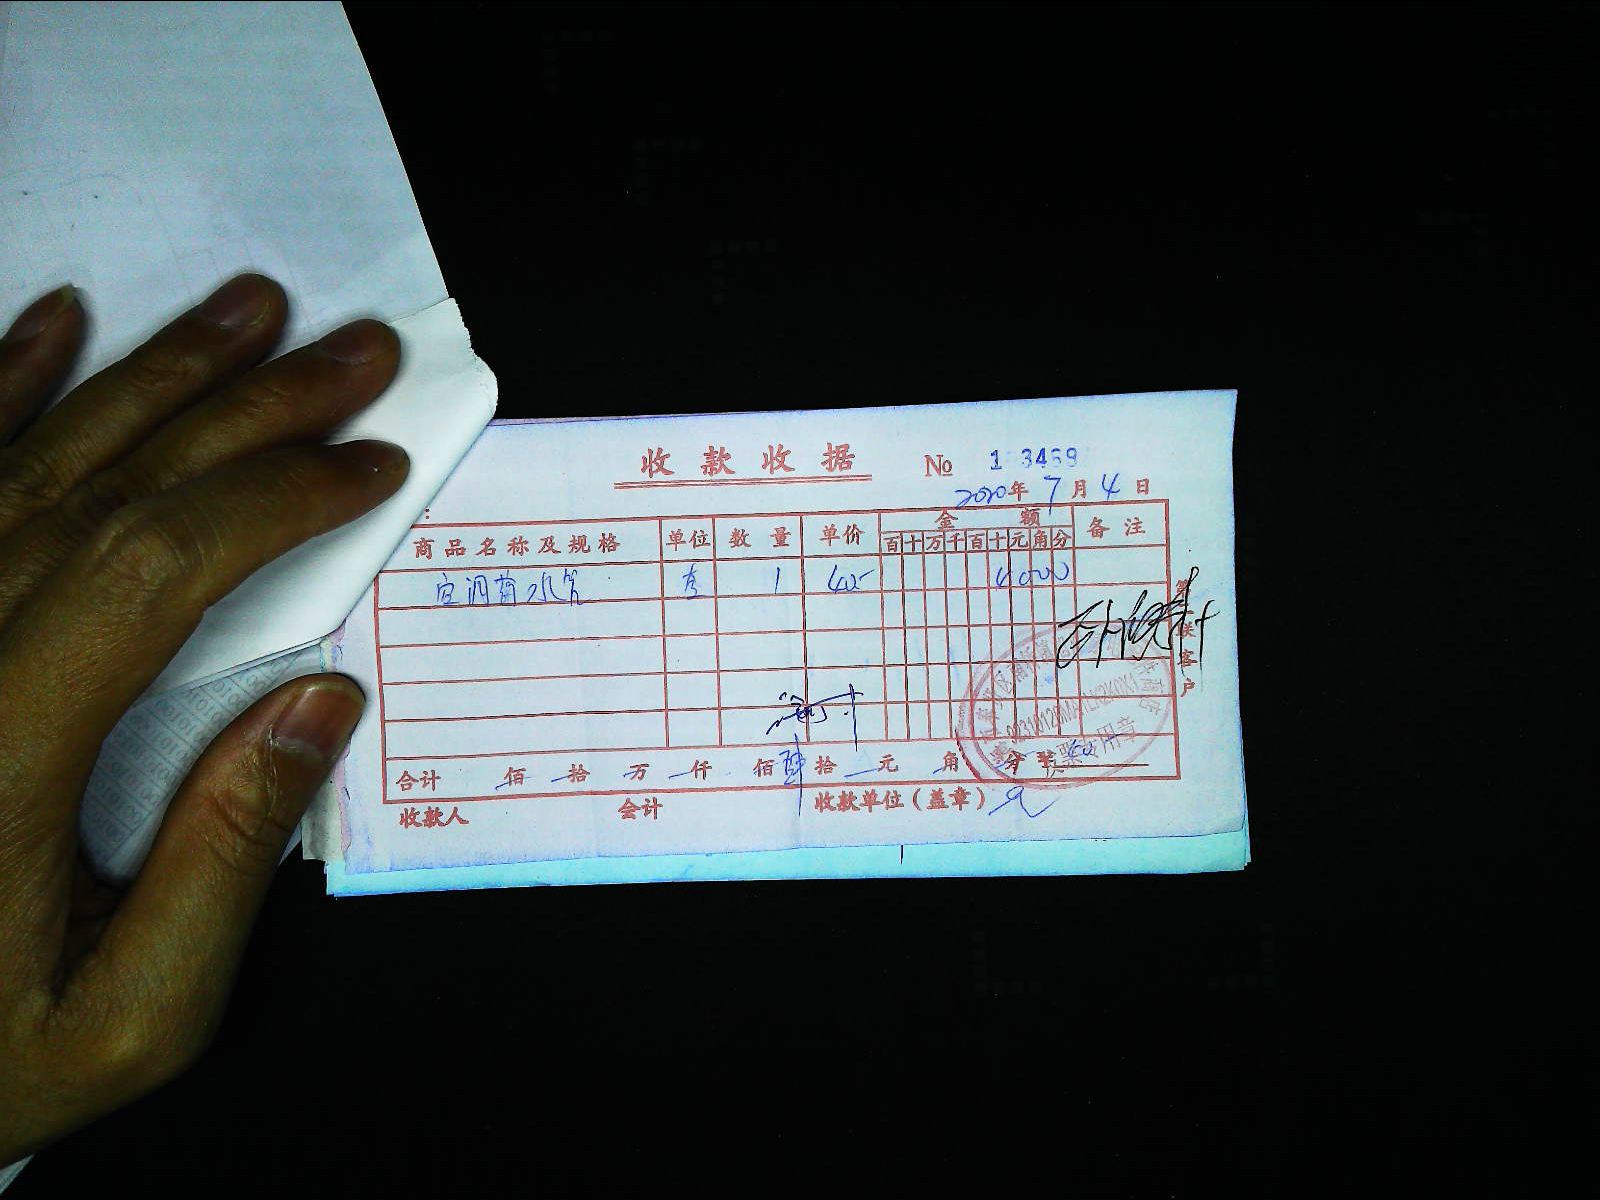 收款收据
№ 1 3469
2020年7月4日
:
商品名称及规格 单位 数量 单价 金额 备注
百十万千百十元角分
空调 水管 套 1 40- 4000
第 联客户
合计 佰 拾 万 仟 佰 肆拾 元 角 分
发票专用章
收款人 会计 收款单位(盖章)